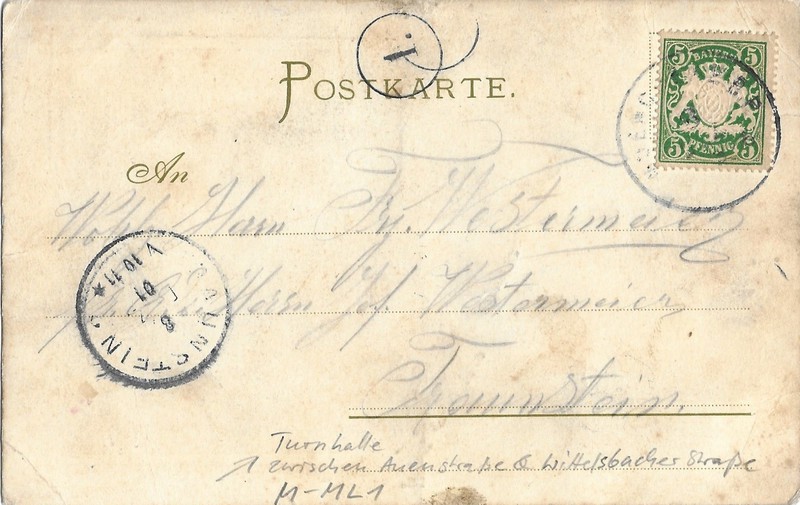 1.
POSTKARTE.
5 5
BAYERN
PFENNIG
5 5
An
Herrn Westermeier
Herrn Jos. Westermeier
Traunstein.
TRAUNSTEIN
8
01
V.10-11 ★
Turnhalle
zwischen Auenstraße & Wittelsbacher Straße
M-ML1